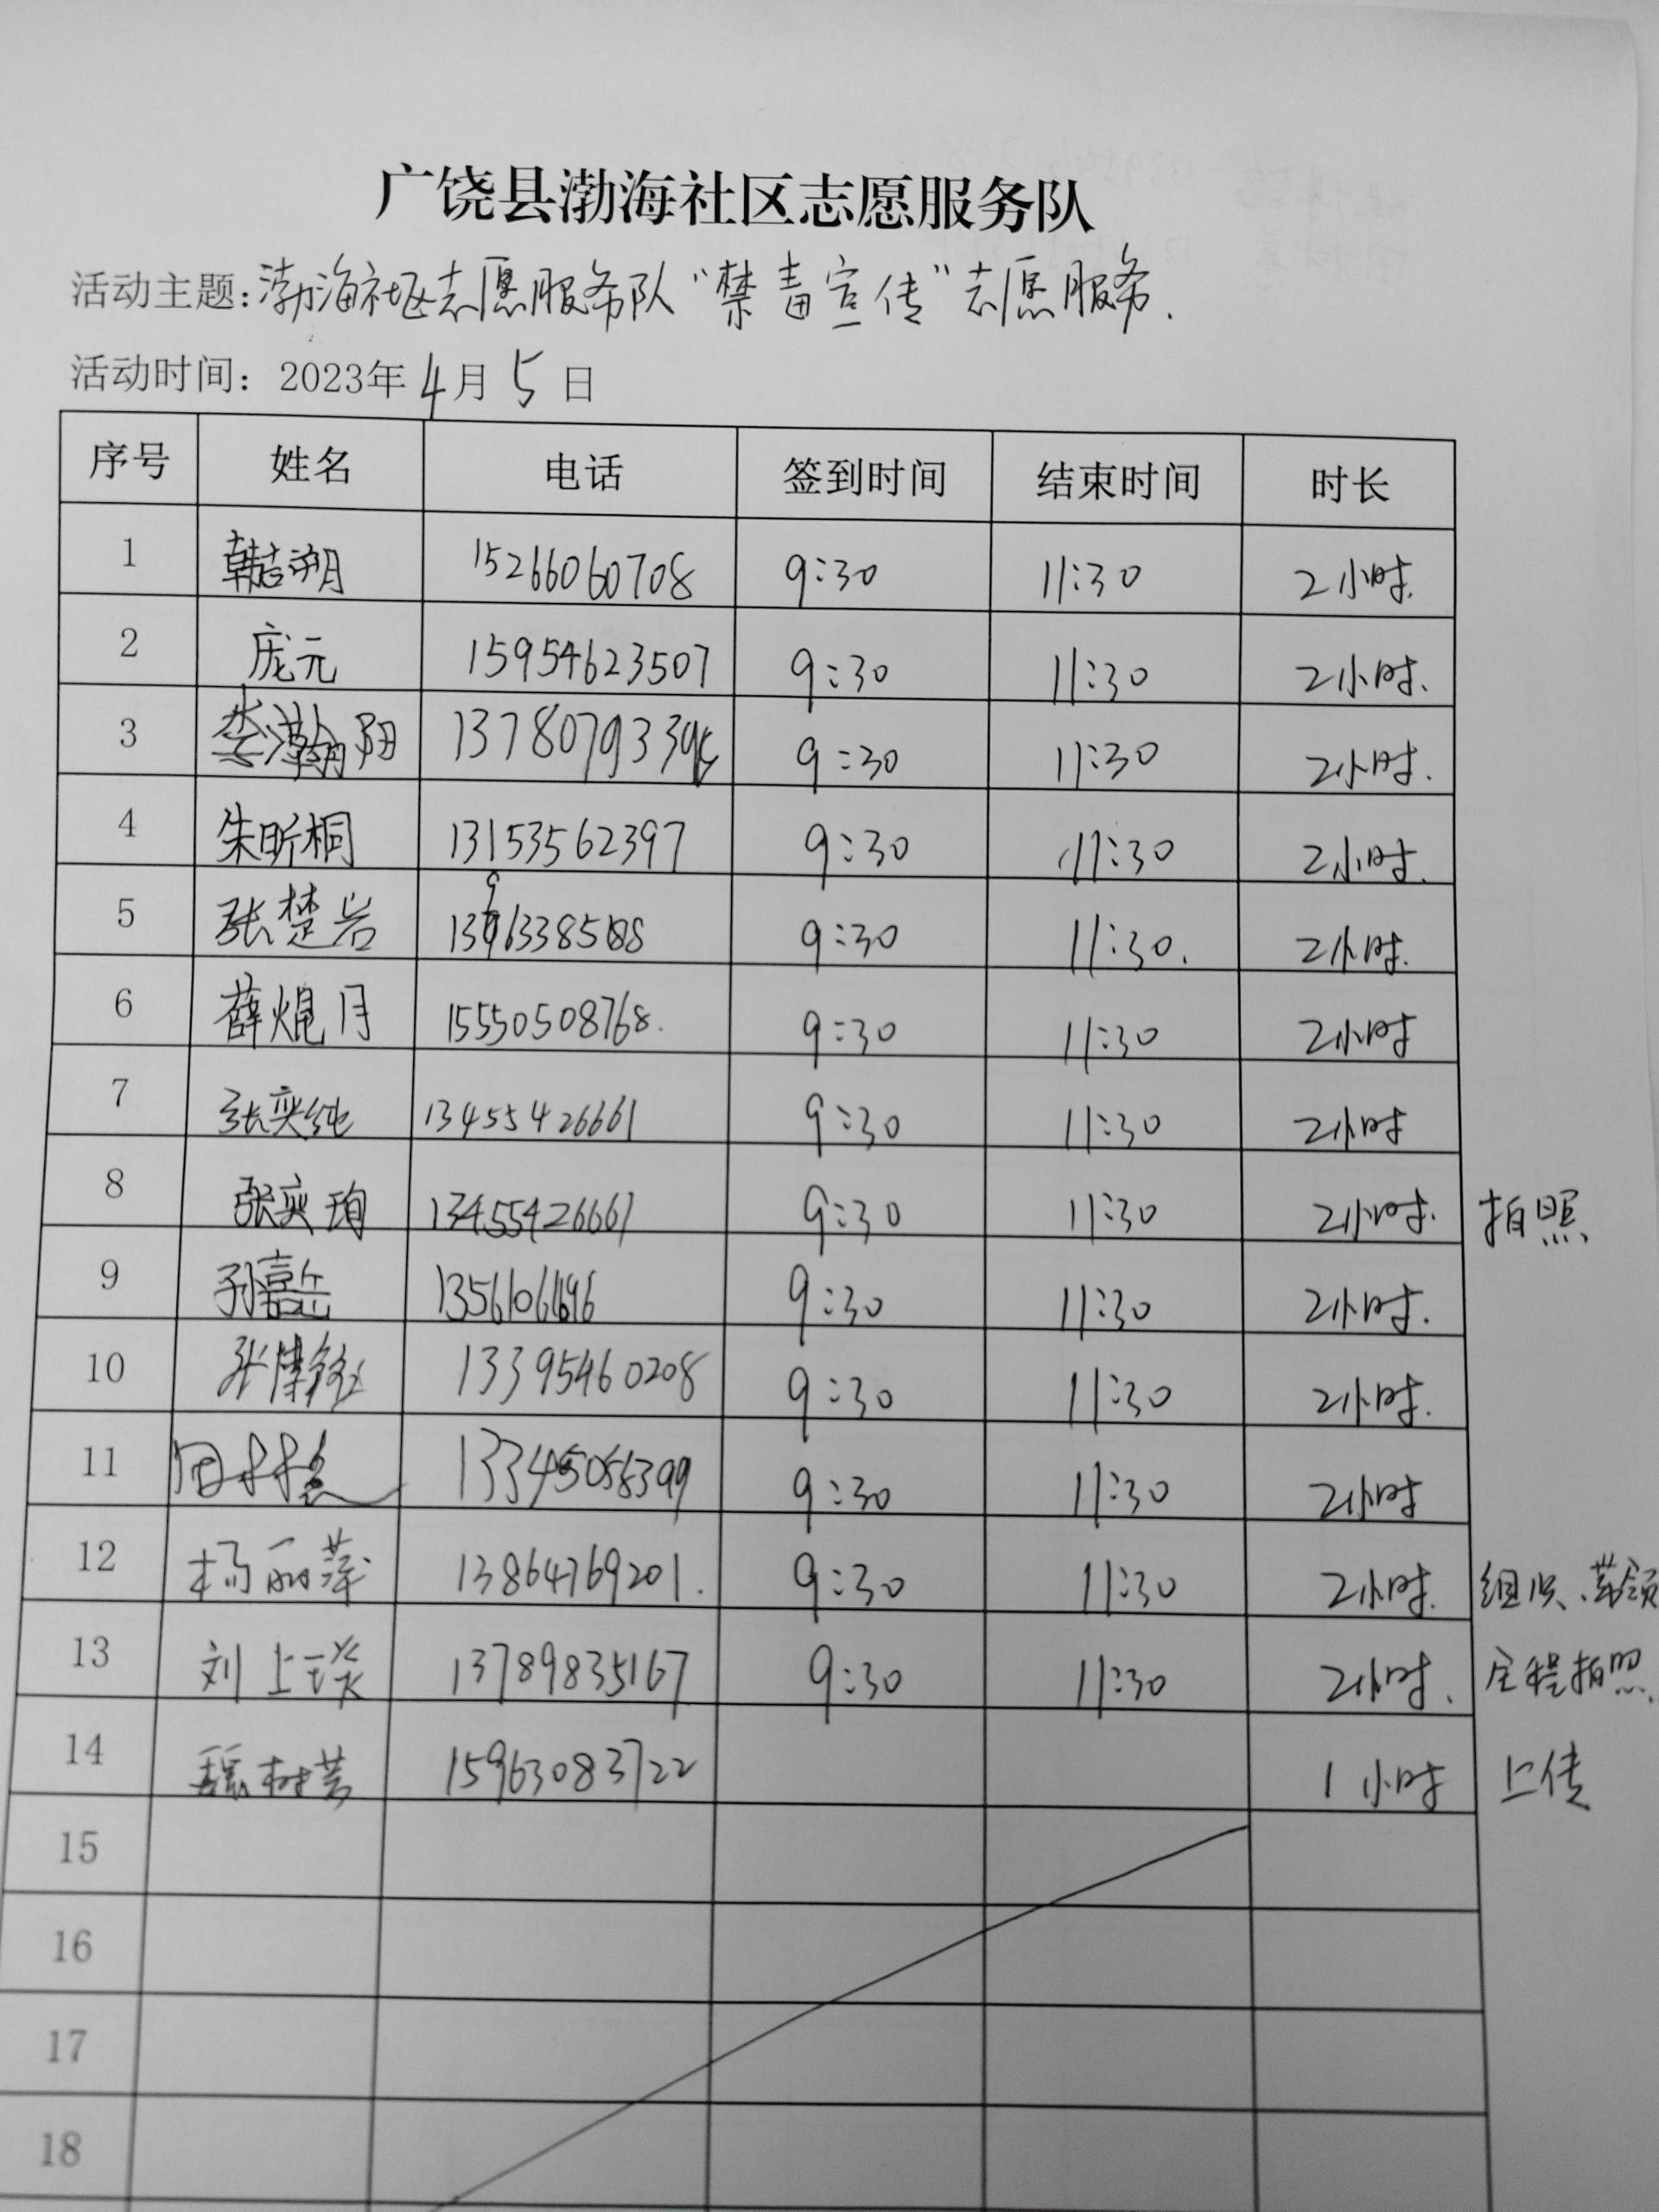 广饶县渤海社区志愿服务队
活动主题:渤海社区志愿服务队“禁毒宣传”志愿服务.
活动时间: 2023年4月5日
序号 姓名 电话 签到时间 结束时间 时长
1 韩喆朔 15266060708 9:30 11:30 2小时.
2 庞元 15954623507 9:30 11:30 2小时.
3 娄瀚阳 9:30 11:30 2小时.
4 朱昕桐 13153562397 9:30 11:30 2小时.
5 张楚岩 9:30 11:30. 2小时.
6 薛焜月 15550508768. 9:30 11:30 2小时
7 张奕纯 13455426661 9:30 11:30 2小时
8 张奕珣 13455426661 9:30 11:30 2小时. 拍照
9 孙嘉岳 9:30 11:30 2小时.
10 13395460208 9:30 11:30 2小时.
11 9:30 11:30 2小时
12 杨丽萍 13864769201. 9:30 11:30 2小时. 组织、带领
13 刘上琰 13789835167 9:30 11:30 2小时. 全程拍照
14 魏树芳 15963083722 1小时 上传
15
16
17
18